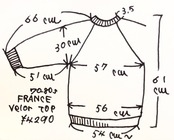 3.5
66 cm
30 cm
61 cm
51 cm
57
FRANCE
Velor top
56
54 cm